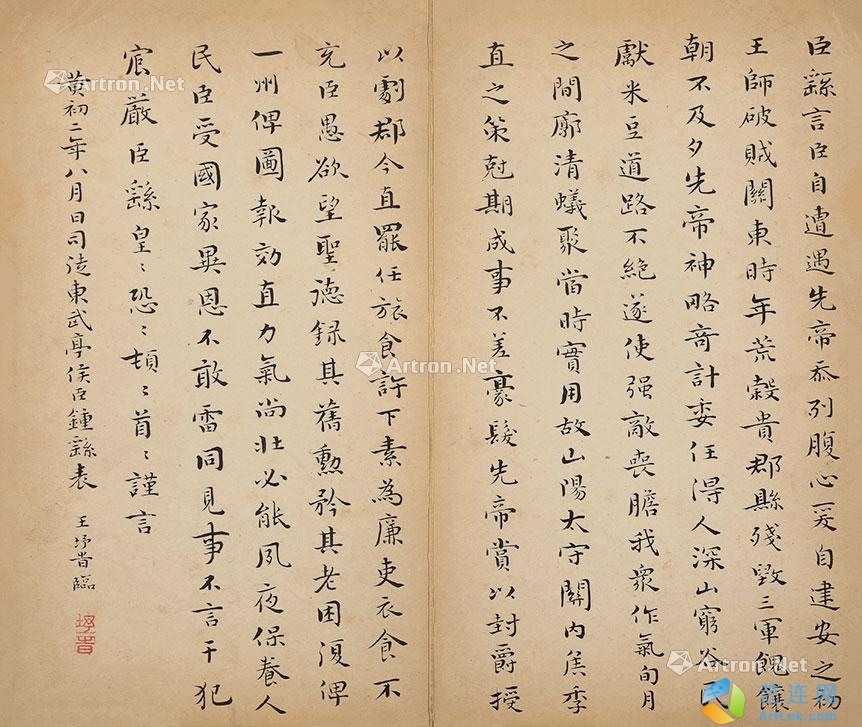 臣繇言臣自遭遇先帝忝列腹心爰自建安之初
王師破賊關東時年荒穀貴郡縣殘毀三軍餽饟
朝不及夕先帝神略奇計委任得人深山窮谷民
獻米豆道路不絕遂使强敵喪膽我衆作氣旬月
之間廓清蟻聚當時實用故山陽太守關內矦季
直之策尅期成事不差豪髮先帝賞以封爵授
以劇郡今直罷任旅食許下素為廉吏衣食不
充臣愚欲望聖德錄其舊勳矜其老困復俾
一州俾圖報効直力氣尚壯必能夙夜保養人
民臣受國家異恩不敢雷同見事不言干犯
宸嚴臣繇皇〻恐〻頓〻首〻謹言
黃初二年八月日司徒東武亭侯臣鍾繇表
王埒晋臨
Artron.Net
Artron.Net
Artron.Net
Artron.Net
芷连网
Artlink.com